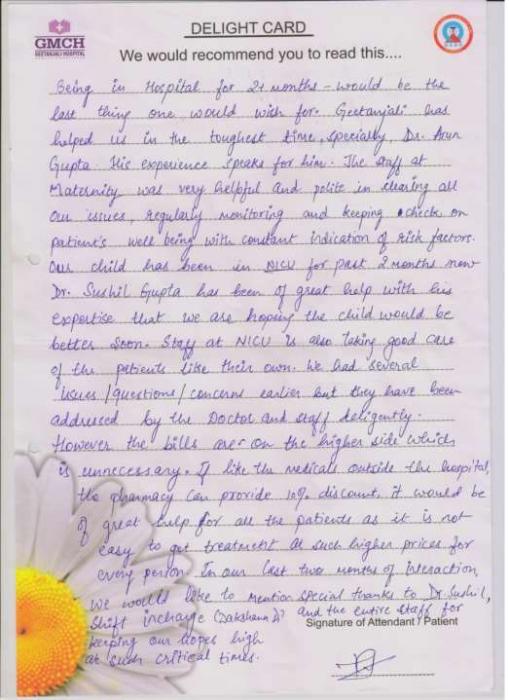 GMCH
GEETANJALI HOSPITAL
DELIGHT CARD
We would recommend you to read this....
Being in Hospital for 2+ months - would be the
last thing one would wish for. Geetanjali has
helped us in the toughest time, specially, Dr. Arun
Gupta. His experience speaks for him. The staff at
Maternity was very helpful and polite in clearing all
our issues, regularly monitoring and keeping check on
patient's well being with constant indication of risk factors.
Our child has been in NICU for past 2 months now
Dr. Sushil Gupta has been of great help with his
expertise that we are hoping the child would be
better soon. Staff at NICU is also taking good care
of the patients like their own. We had several
issues/questions/concerns earlier but they have been
addressed by the Doctor and staff deligently.
However the bills are on the higher side which
is unneccesary. If like the medicals outside the hospital,
the pharmacy can provide 10% discount, it would be
of great help for all the patients as it is not
easy to get treatment at such higher prices for
every person. In our last two months of interaction,
we would like to mention special thanks to Dr. Sushil,
Shift incharge (Dakshana J) and the entire staff for
keeping our hopes high
at such critical times.
Signature of Attendant / Patient